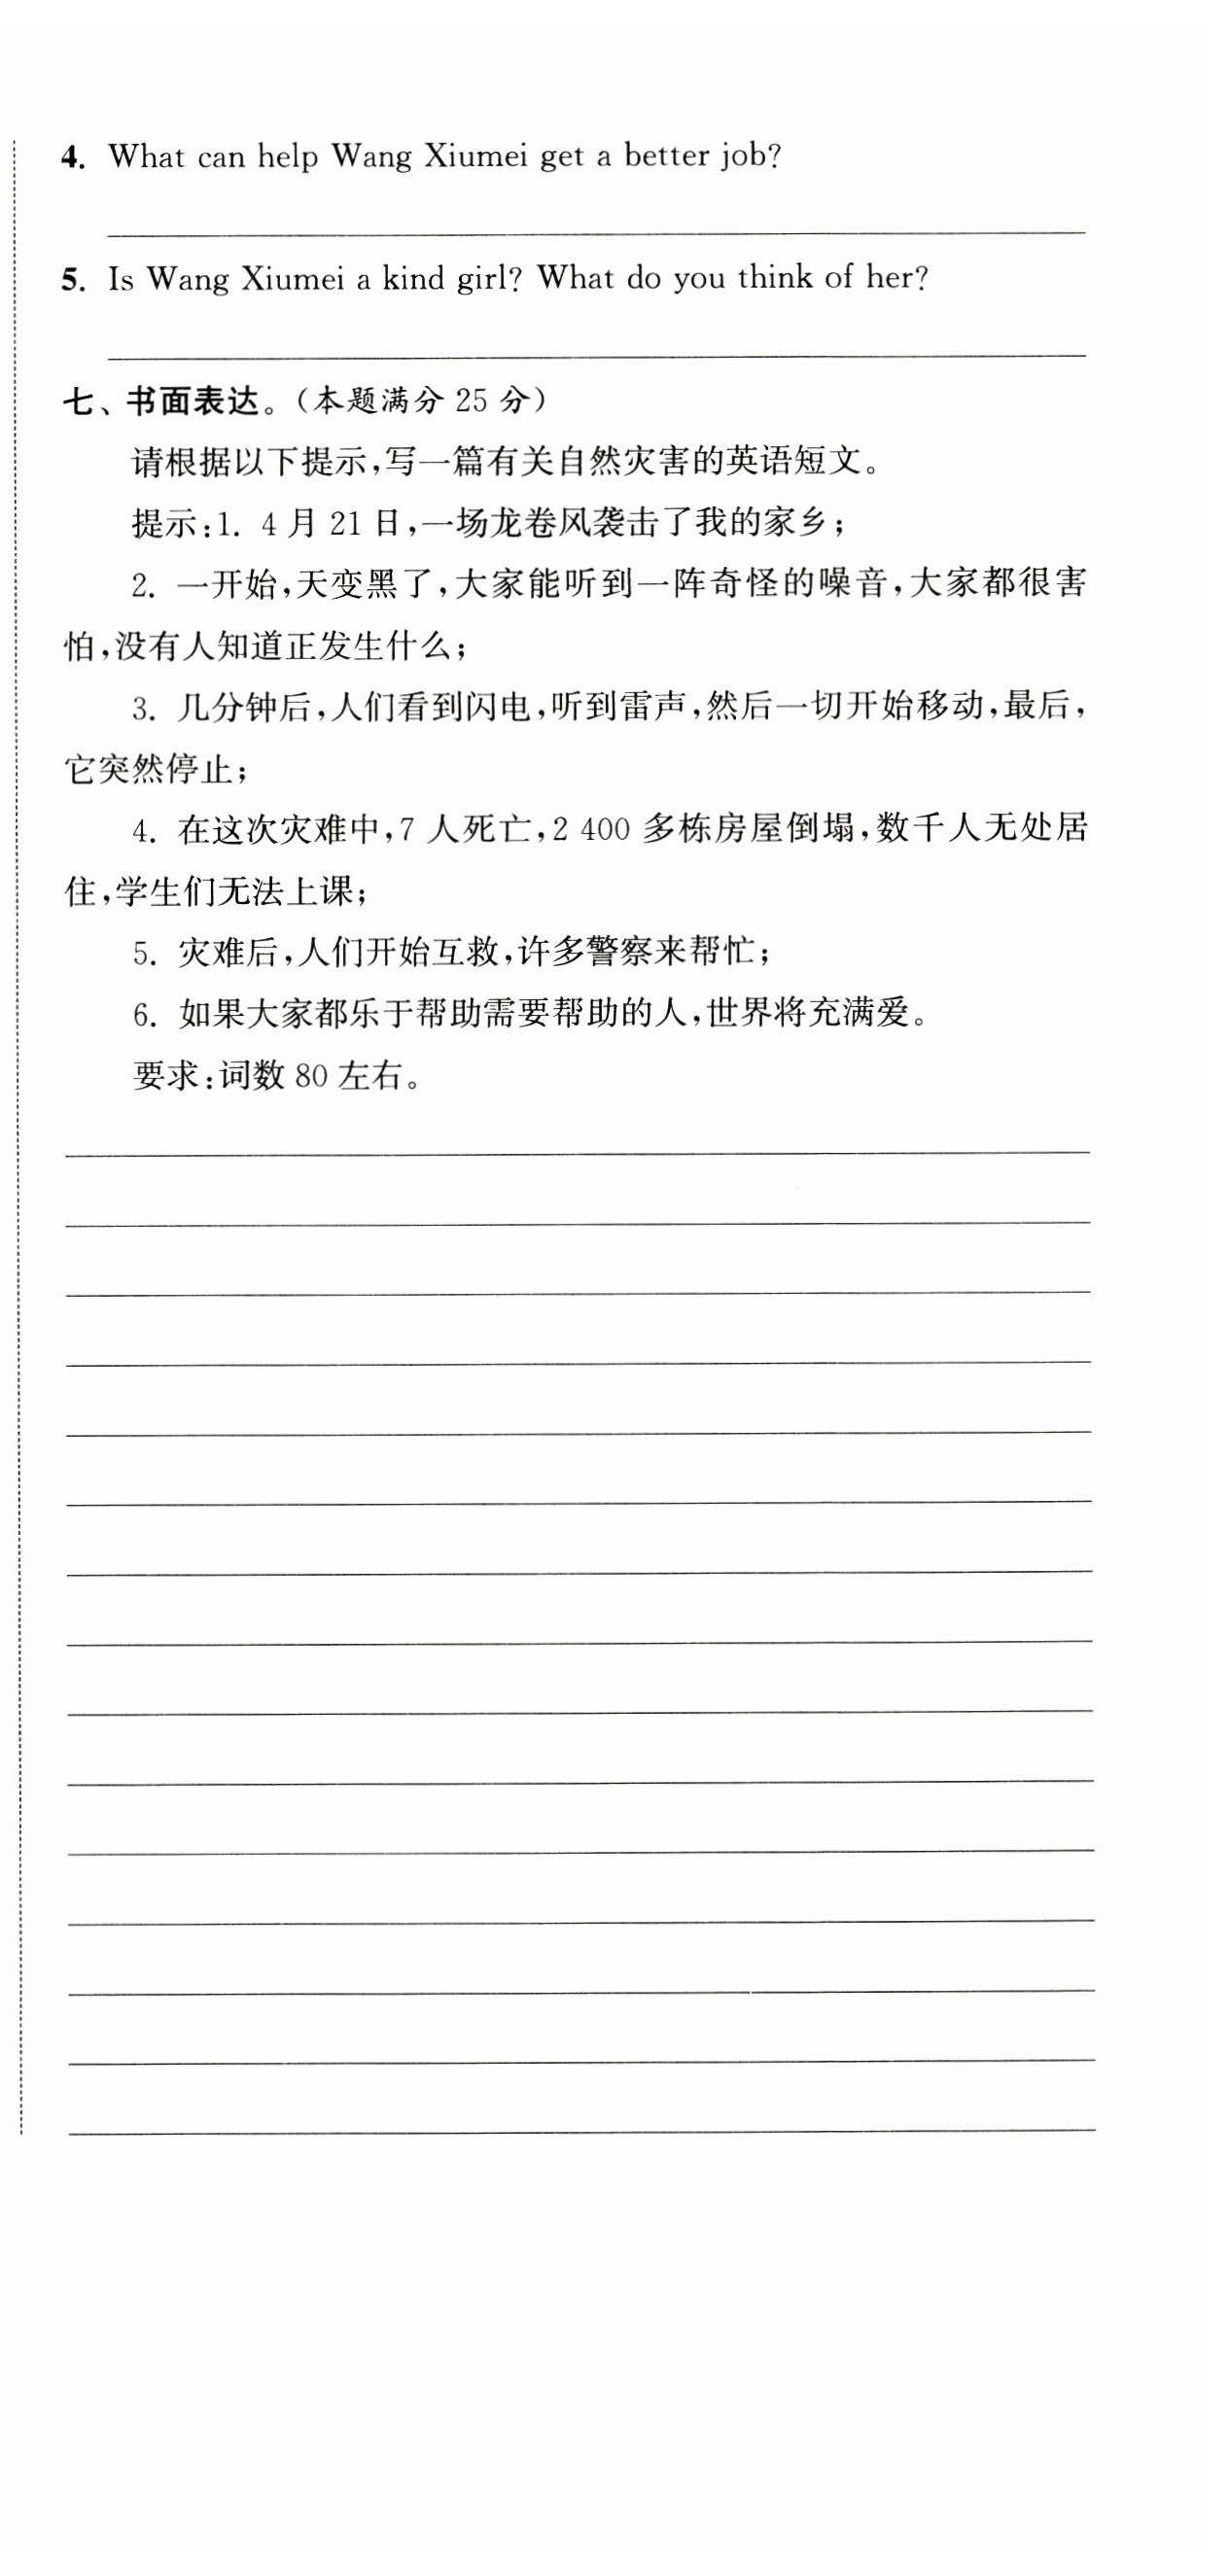 4. What can help Wang Xiumei get a better job?
5. Is Wang Xiumei a kind girl? What do you think of her?
七、书面表达。(本题满分 25 分)
请根据以下提示,写一篇有关自然灾害的英语短文。
提示:1. 4 月 21 日,一场龙卷风袭击了我的家乡;
2. 一开始,天变黑了,大家能听到一阵奇怪的噪音,大家都很害
怕,没有人知道正发生什么;
3. 几分钟后,人们看到闪电,听到雷声,然后一切开始移动,最后,
它突然停止;
4. 在这次灾难中,7 人死亡,2 400 多栋房屋倒塌,数千人无处居
住,学生们无法上课;
5. 灾难后,人们开始互救,许多警察来帮忙;
6. 如果大家都乐于帮助需要帮助的人,世界将充满爱。
要求:词数 80 左右。